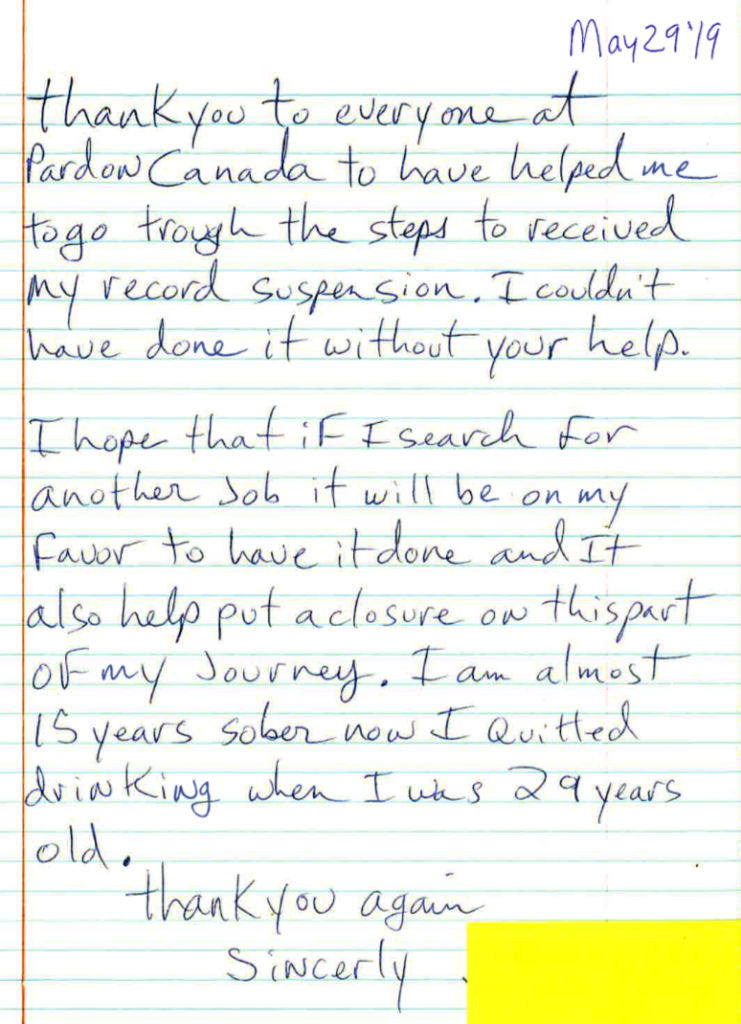 May 29 '19
thank you to everyone at
Pardon Canada to have helped me
to go trough the steps to received
my record suspension. I couldn't
have done it without your help.
I hope that if I search for
another Job it will be on my
favor to have it done and It
also help put a closure on this part
of my Journey. I am almost
15 years sober now I Quitted
drinking when I was 29 years
old.
thank you again
Sincerly